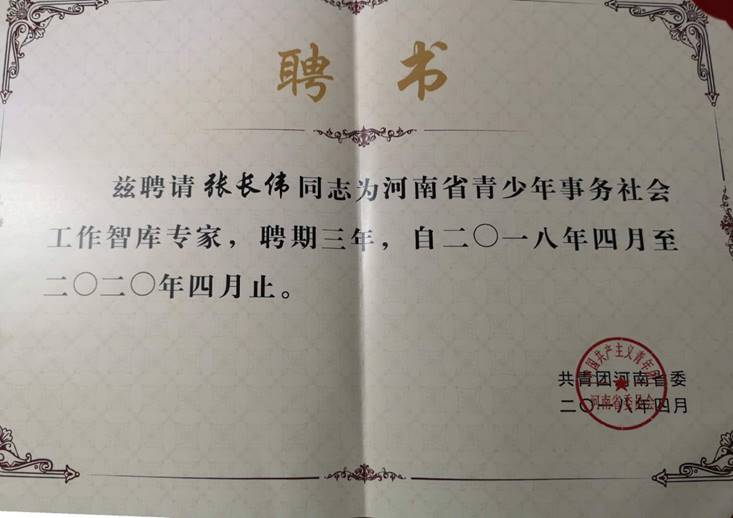 聘书
兹聘请张长伟同志为河南省青少年事务社会
工作智库专家，聘期三年，自二〇一八年四月至
二〇二〇年四月止。
共青团河南省委
二〇一八年四月
中国共产主义青年团
河南省委员会